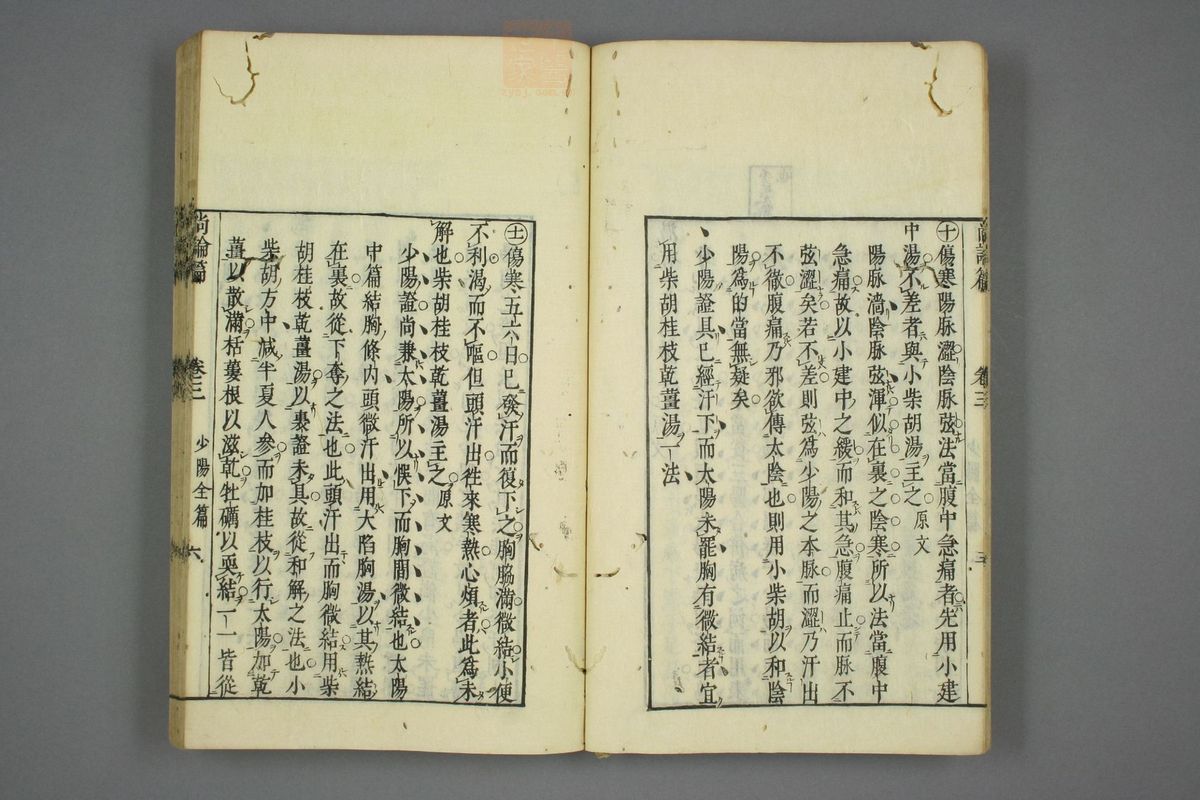 ⊕傷寒陽脉澀陰脉弦法當腹中急痛者先用小建
中湯不差者與小柴胡湯主之原文
陽脉濇陰脉弦渾似在裏之陰寒所以法當腹中
急痛故以小建中之緩而和其急腹痛止而脉不
弦澀矣若不差則弦爲少陽之本脉而澀乃汗出
不徹腹痛乃邪欲傳太陰也則用小柴胡以和陰
陽爲的當無疑矣
少陽證具已經汗下而太陽未罷胸有微結者宜
用柴胡桂枝乾薑湯一法
卷三
㊏傷寒五六日已發汗而復下之胸脇滿微結小便
不利渴而不嘔但頭汗出徃來寒熱心煩者此爲未
解也柴胡桂枝乾薑湯主之原文
少陽證尚兼太陽所以悞下而胸間微結也太陽
中篇結胸條内頭微汗出用大陷胸湯以其熱結
在裏故從下奪之法也此頭汗出而胸微結用柴
胡桂枝乾薑湯以裹證未具故從和解之法也小
柴胡方中减半夏人參而加桂枝以行太陽加乾
薑以散滿栝蔞根以滋乾牡礪以耎結一一皆從
尚論篇 卷三 少陽全篇 六